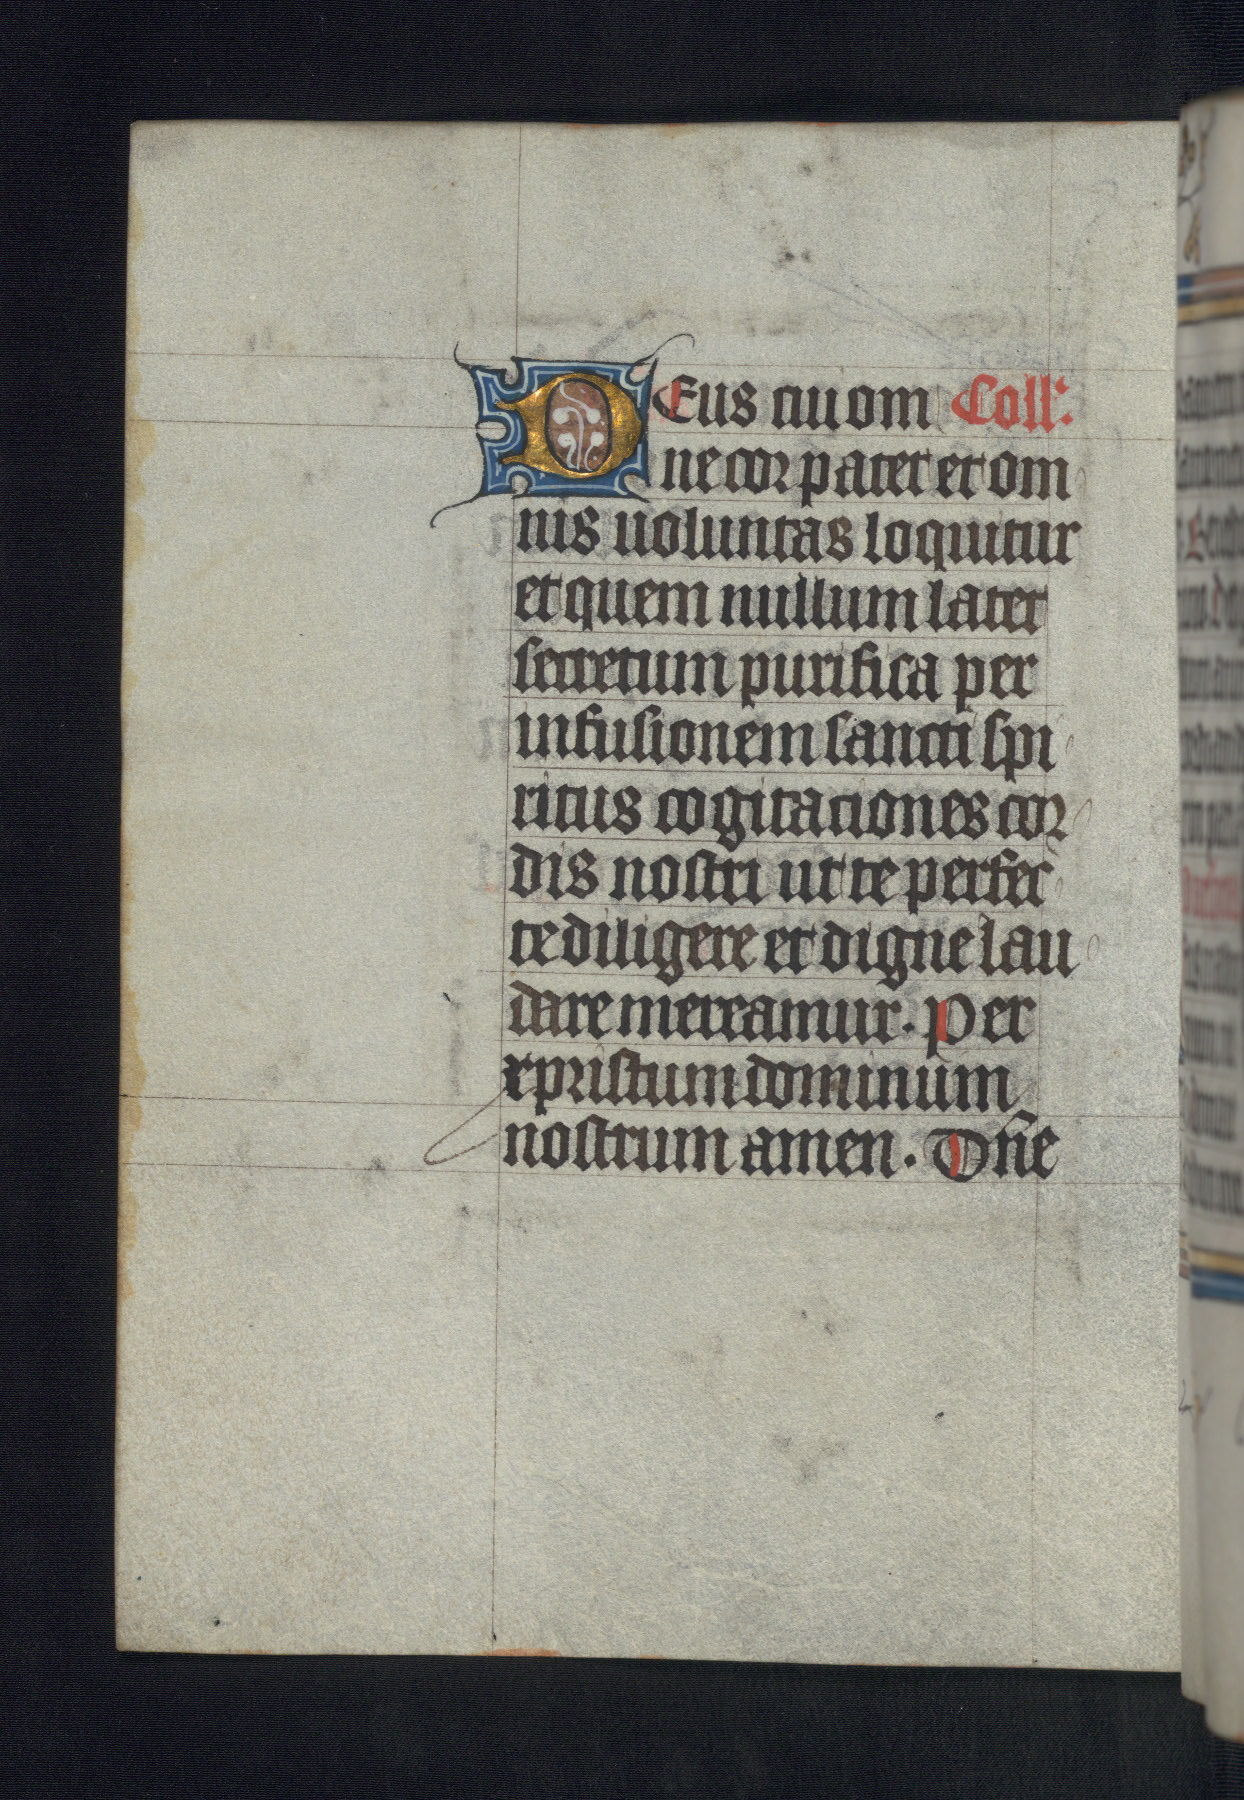 DEus cui om Coll'.
ne cor patet et om
nis uoluntas loquitur
et quem nullum latet
secretum purifica per
infusionem sancti spi
ritus cogitaciones cor
dis nostri ut te perfec
te diligere et digne lau
dare mereamur. Per
xpristum dominum
nostrum amen. Dñe